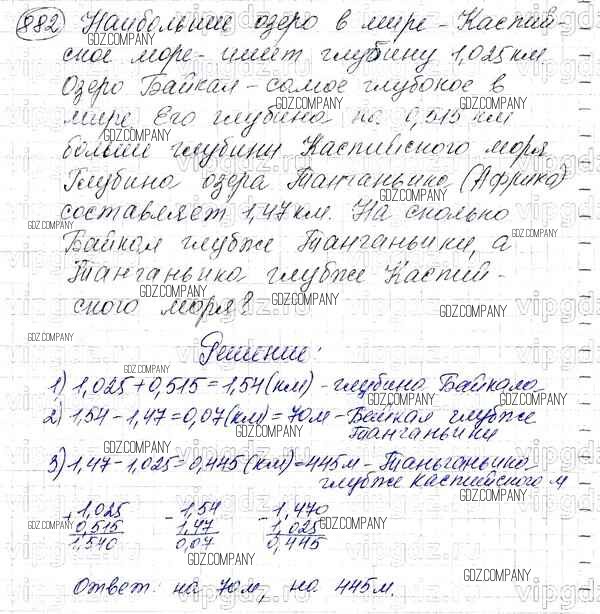 882 Наибольшее озеро в мире - Каспий-
ское море - имеет глубину 1,025 км
Озеро Байкал - самое глубокое в
мире Его глубина на 0,515 км
больше глубины Каспийского моря
Глубина озера Танганьика (Африка)
составляет 1,47 км. На сколько
Байкал глубже Танганьики, а
Танганьика глубже Каспий-
ского моря?
Решение:
1) 1,025 + 0,515 = 1,54 (км) - глубина Байкала
2) 1,54 - 1,47 = 0,07 (км) = 70 м - Байкал глубже
Танганьики
3) 1,47 - 1,025 = 0,445 (км) = 445 м - Таньганьика
глубже Каспийского м
+ 1,025 - 1,54 - 1,470
0,515 1,47 1,025
1,540 0,07 0,445
Ответ: на 70 м, на 445 м.
GDZ.COMPANY
vipgdz.ru